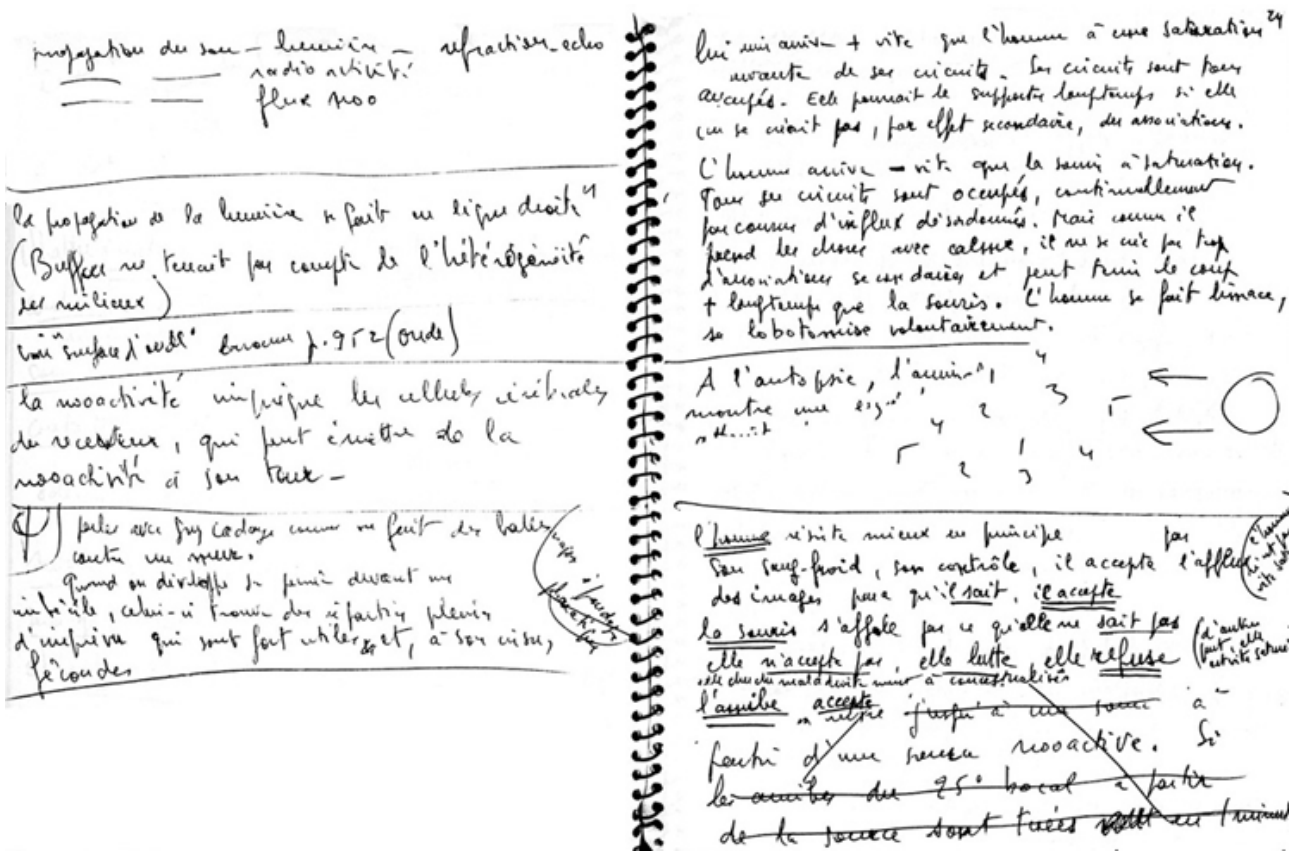 propagation du son – lumière – refraction – echo
radioactivité
flux noo
la propagation de la lumière se fait en ligne droite"
( ne tenait pas compte de l'hétérogénéité
des milieux)
voir "surface d'onde" p. 952 (onde)
la nooactivité imprègne les cellules cérébrales
du receveur, qui peut émettre de la
nooactivité à son tour –
parler avec comme on fait des balles
contre un mur.
Quand on développe sa pensée devant un
imbécile, celui-ci trouve des réparties pleines
d'imprévu qui sont fort utiles et, à son insu,
fécondes
24
arrive + vite que l'homme à une saturation
de ses circuits. Ses circuits sont tous
occupés. Elle pourrait le supporter longtemps si elle
ne se créait pas, par effet secondaire, des associations.
L'homme arrive – vite que la souris à saturation.
Tous ses circuits sont occupés, continuellement
parcourus d'influx désordonnés. Mais comme il
prend les choses avec calme, il ne se crée pas trop
d'associations secondaires et peut tenir le coup
+ longtemps que la souris. L'homme se fait limace,
se lobotomise volontairement.
A l'autopsie,
montre une
1 4
2 3 5
4 1 4
5 2 3
l'homme résiste mieux en principe par
son sang-froid, son contrôle, il accepte l'afflux
des images parce qu'il sait, il accepte
la souris s'affole parce qu'elle ne sait pas
elle n'accepte pas, elle lutte, elle refuse
elle cherche maladroitement à conceptualiser
l'amibe accepte
jusqu'à une à
partir d'une source nooactive. Si
les amibes du 25° bocal à partir
de la source sont tuées en 1 minute